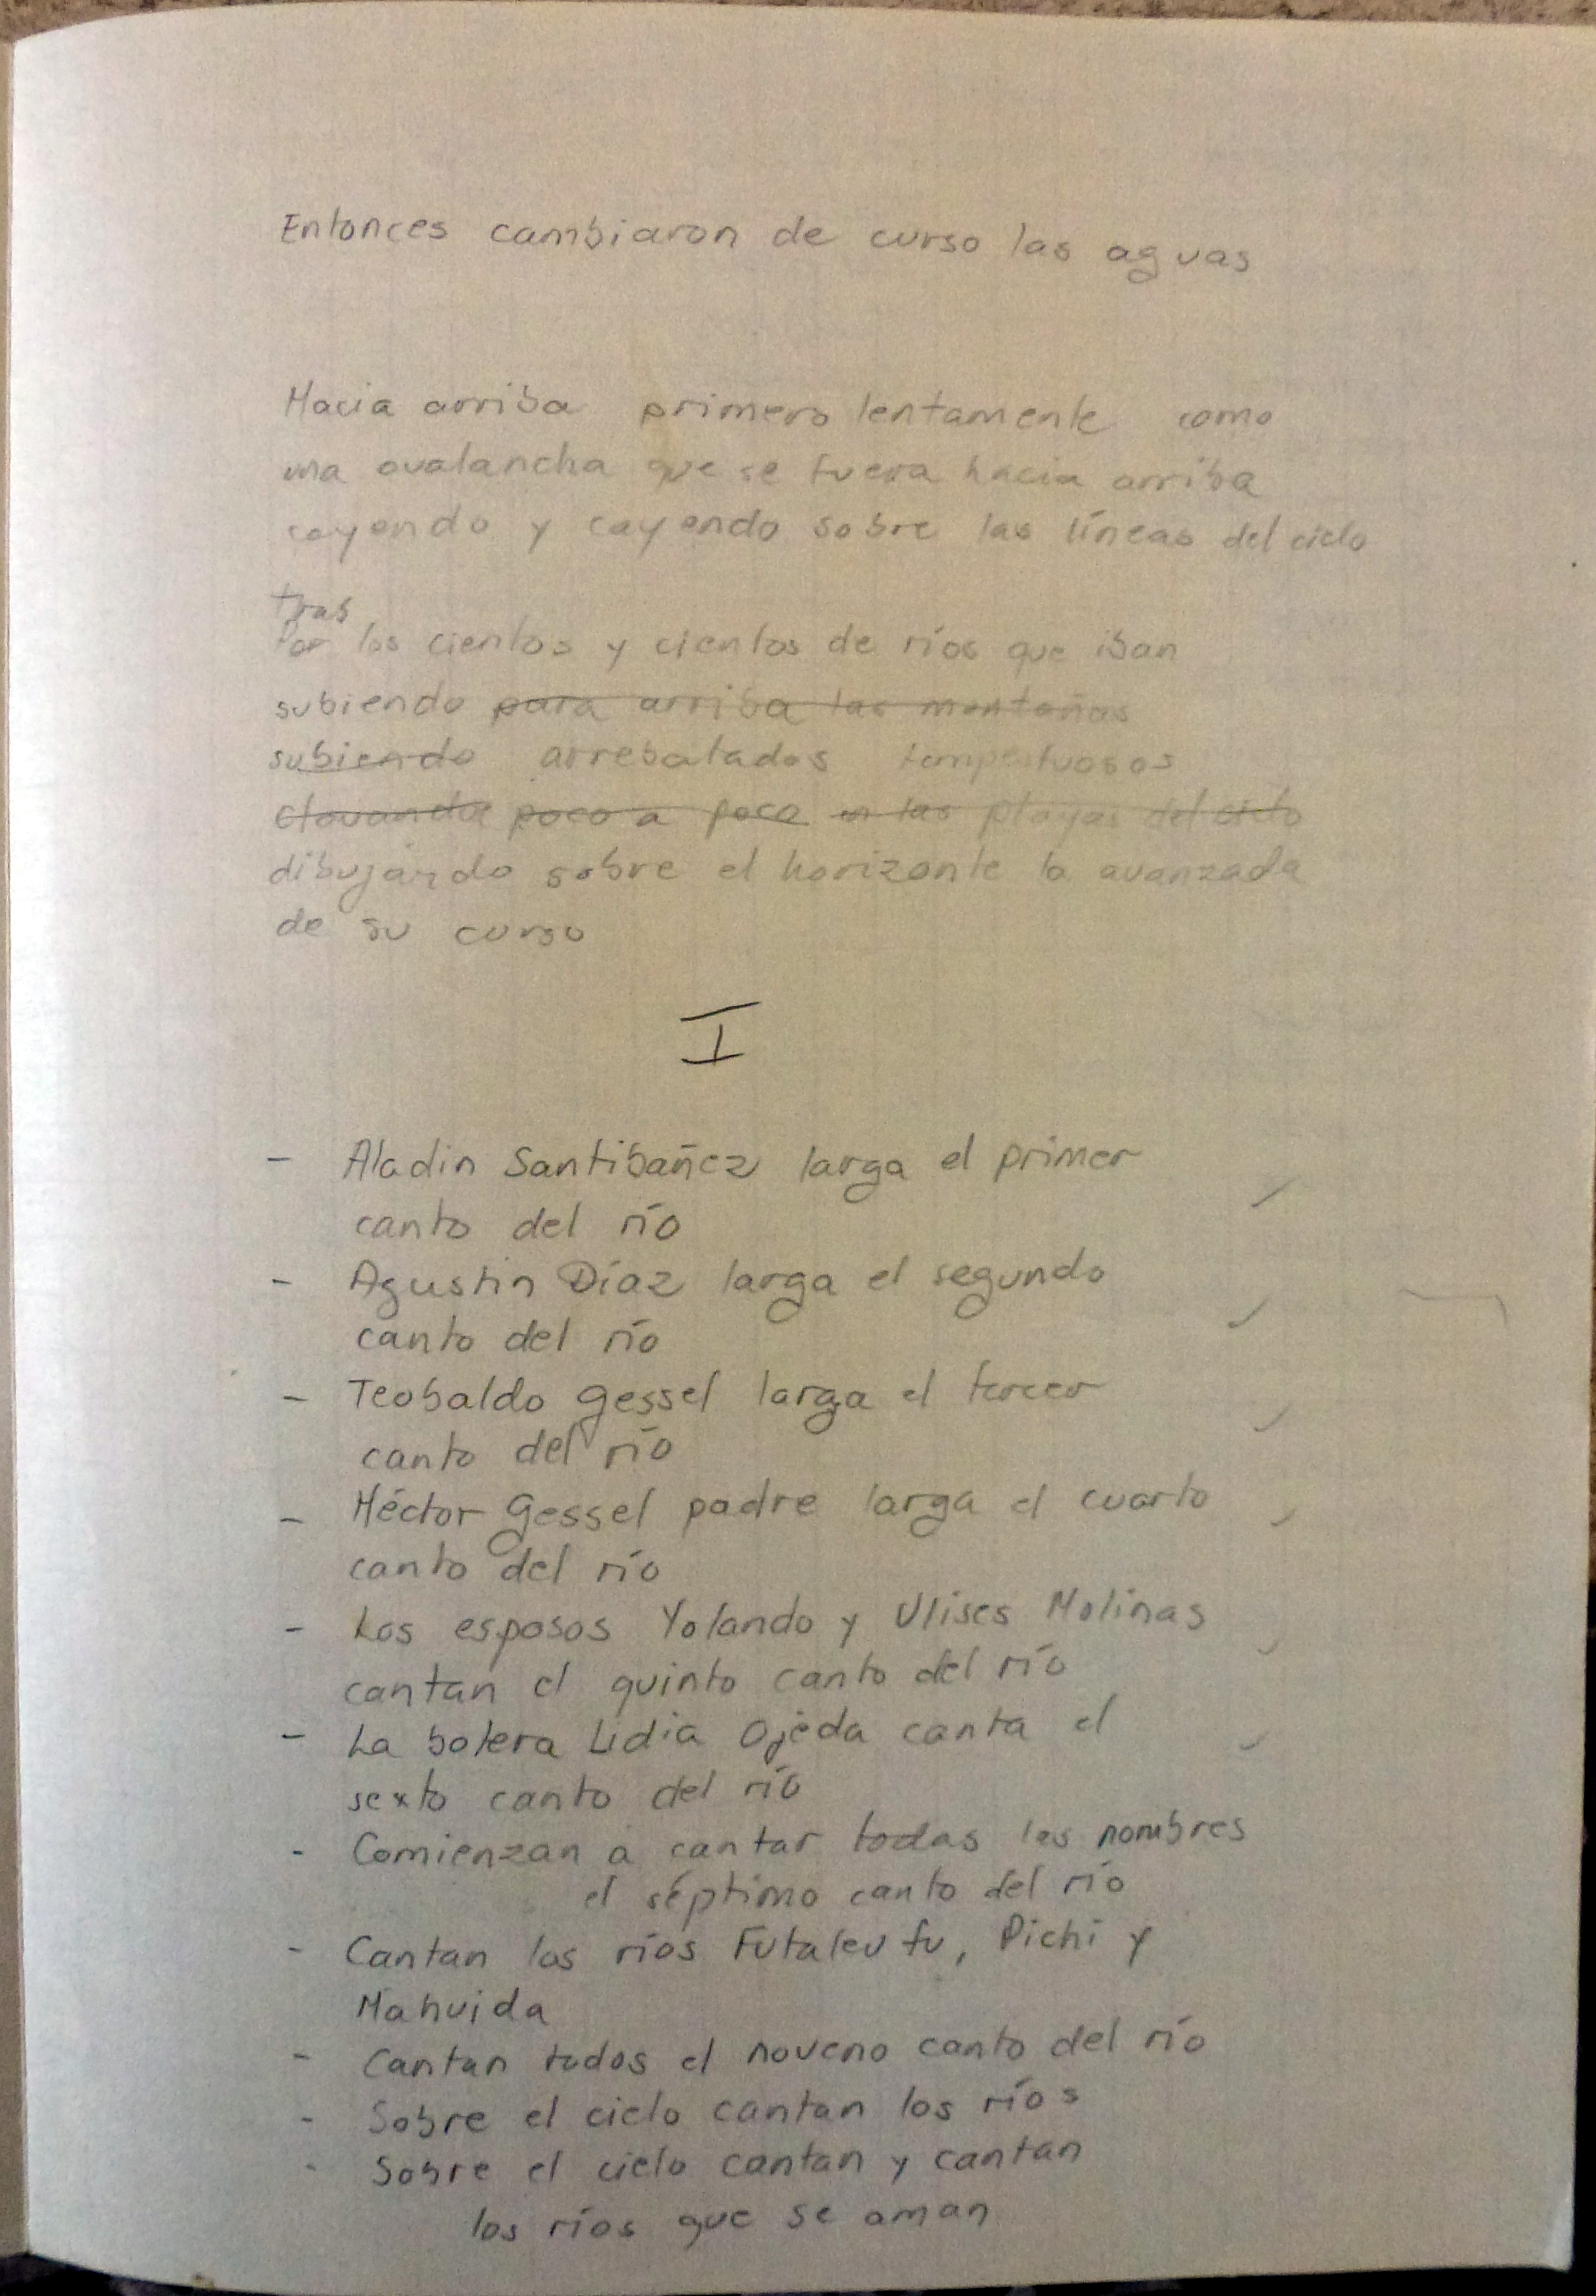 Entonces cambiaron de curso las aguas
Hacia arriba primero lentamente como
una avalancha que se fuera hacia arriba
cayendo y cayendo sobre las líneas del cielo
tras
Por los cientos y cientos de ríos que iban
subiendo para arriba las montañas
subiendo arrebatados tempestuosos
poco a poco en las playas del cielo
dibujando sobre el horizonte la avanzada
de su curso
I
- Aladin Santibañez larga el primer
canto del río
- Agustin Díaz larga el segundo
canto del río
- Teobaldo Gessel larga el tercer
canto del río
- Héctor Gessel padre larga el cuarto
canto del río
- Los esposos Yolando y Ulises Molinas
cantan el quinto canto del río
- La botera Lidia Ojeda canta el
sexto canto del río
- Comienzan a cantar todas los nombres
el séptimo canto del río
- Cantan los ríos Futaleufu, Pichi y
Mahuida
- Cantan todos el noveno canto del río
- Sobre el cielo cantan los ríos
- Sobre el cielo cantan y cantan
los ríos que se aman